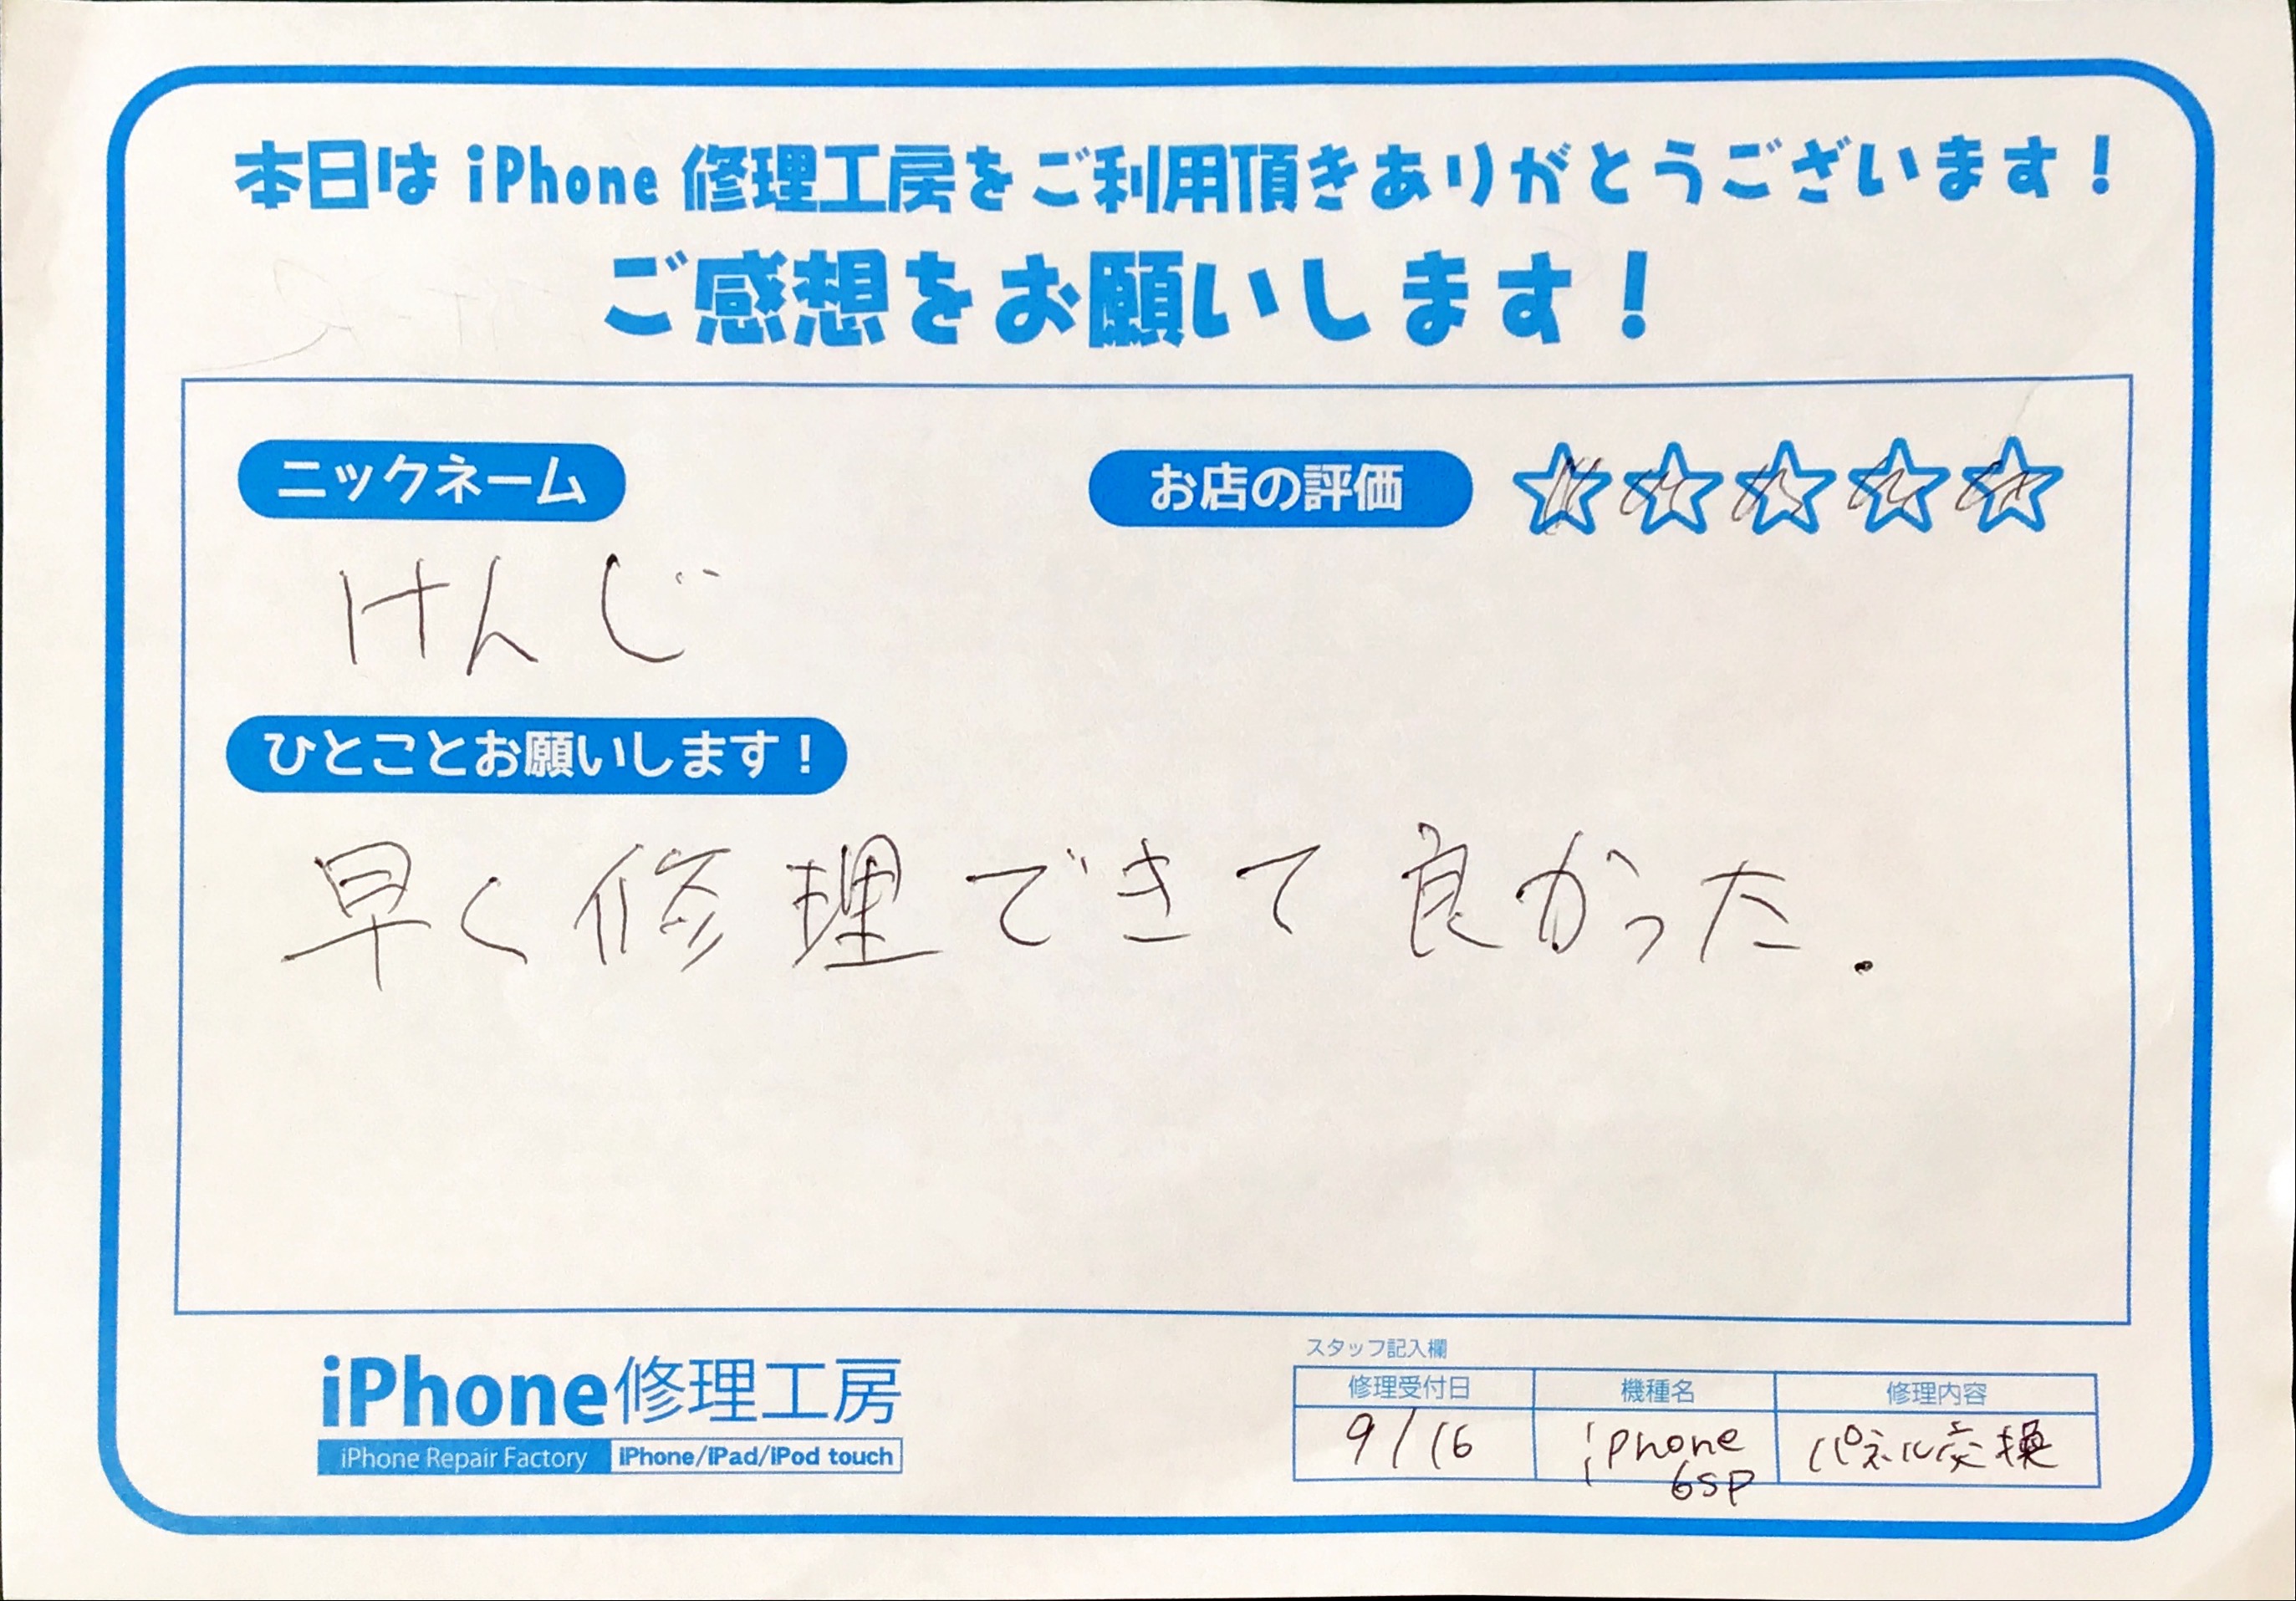 本日は iPhone 修理工房をご利用頂きありがとうございます！
ご感想をお願いします！
ニックネーム
お店の評価 ☆☆☆☆☆
けんじ
ひとことお願いします！
早く修理できて良かった.
iPhone修理工房
iPhone Repair Factory iPhone/iPad/iPod touch
スタッフ記入欄
修理受付日 機種名 修理内容
9/16 iphone 6sp パネル交換